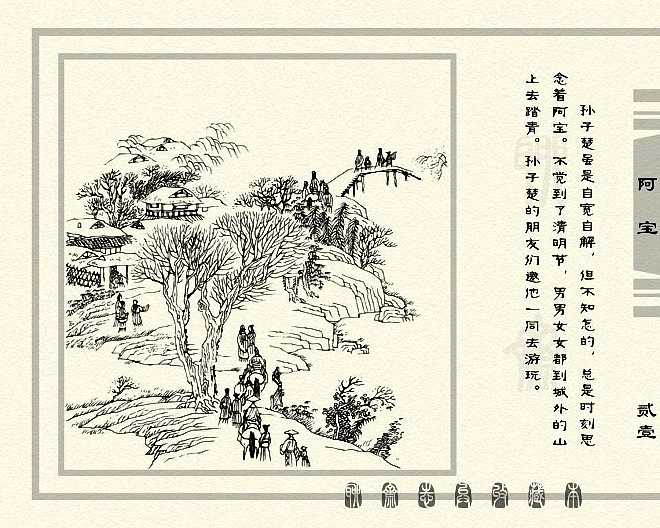 孙子楚虽是自宽自解，但不知怎的，总是时刻思
念着阿宝。不觉到了清明节，男男女女都到城外的山
上去踏青。孙子楚的朋友们邀他一同去游玩。
阿宝
贰壹
聊斋志异收藏本